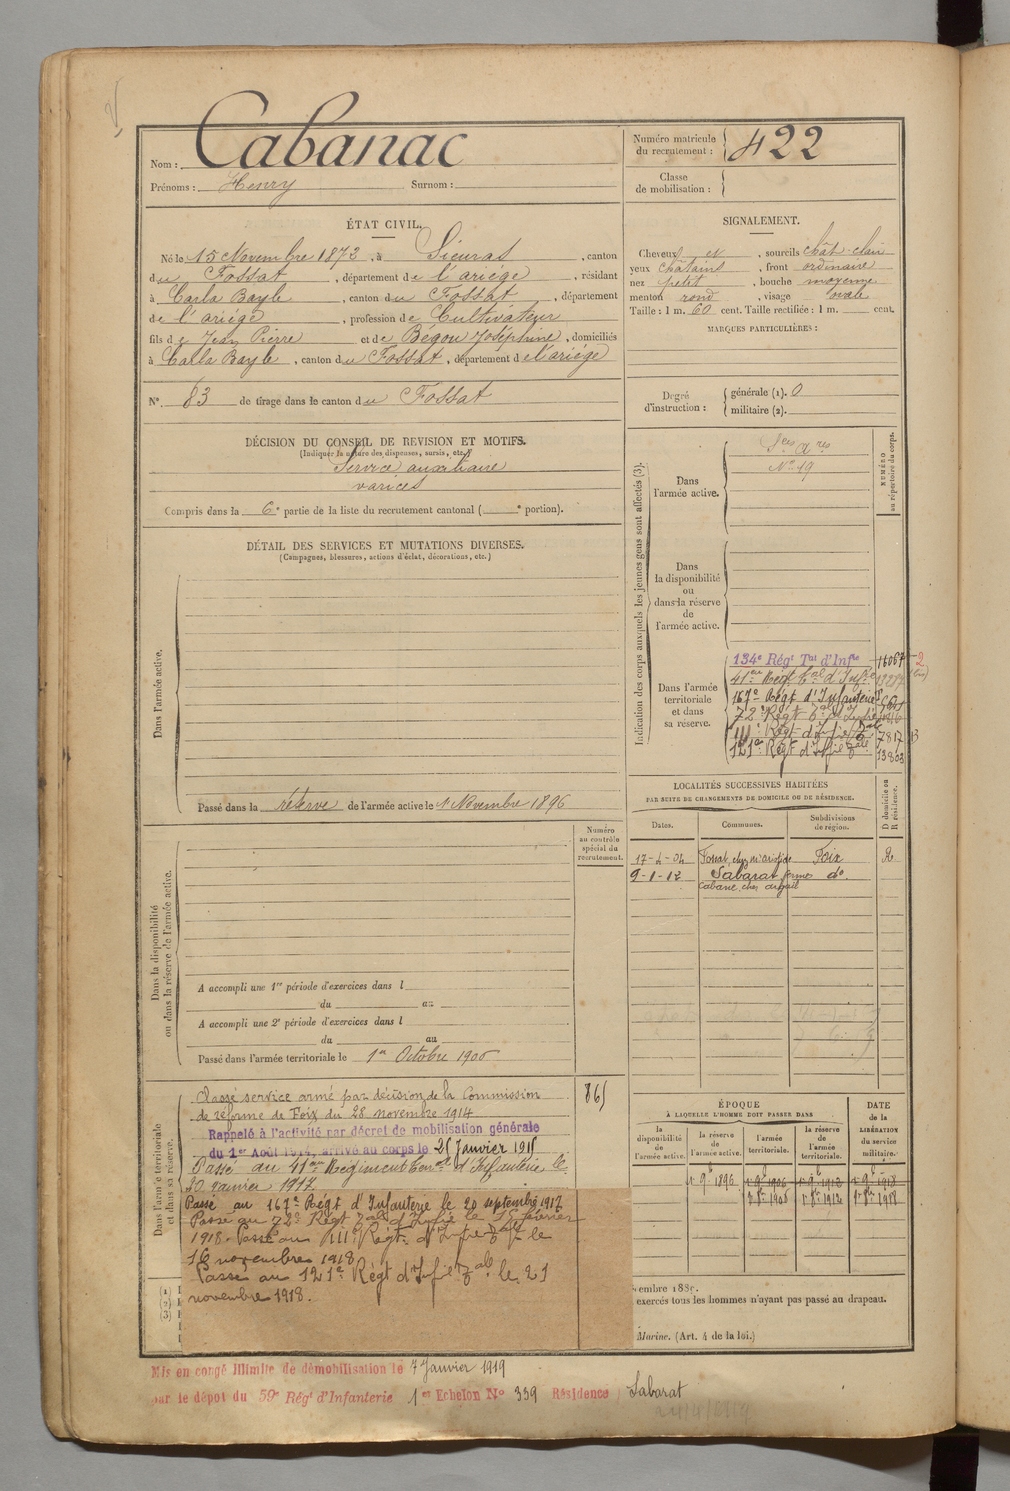 Nom : Cabanac
Prénoms : Henry Surnom :
Numéro matricule du recrutement : 422
Classe de mobilisation :
ÉTAT CIVIL.
Né le 15 Novembre 1873, à Sieuras, canton
du Fossat, département de l'ariége, résidant
à Carla Bayle, canton du Fossat, département
de l'ariége, profession de Cultivateur
fils de Jean Pierre et de Bégou Joséphine, domiciliés
à Carla Bayle, canton du Fossat, département de l'ariége
N° 83 de tirage dans le canton du Fossat
SIGNALEMENT.
Cheveux et, sourcils chât. clair
yeux chatains, front ordinaire
nez petit, bouche moyenne
menton rond, visage ovale
Taille : 1 m. 60 cent. Taille rectifiée : 1 m. cent.
MARQUES PARTICULIÈRES :
Degré d'instruction : générale (1). 0
militaire (2).
DÉCISION DU CONSEIL DE REVISION ET MOTIFS.
(Indiquer la nature des dispenses, sursis, etc.)
Service auxiliaire
varices
Compris dans la 6e partie de la liste du recrutement cantonal ( e portion).
DÉTAIL DES SERVICES ET MUTATIONS DIVERSES.
(Campagnes, blessures, actions d'éclat, décorations, etc.)
Dans l'armée active.
Passé dans la réserve de l'armée active le 1 Novembre 1896
Indication des corps auxquels les jeunes gens sont affectés (3).
NUMÉRO au répertoire du corps.
Dans l'armée active.
Sces ares
N° 19
Dans la disponibilité ou dans la réserve de l'armée active.
Dans l'armée territoriale et dans sa réserve.
134e Régt Tal d'Infie 16067
41me Régt tal d'Infie
167e Régt d'Infanterie
72e Régt Tal d'Infie
111e Régt d'Infie Tal 7817
121e Régt d'Infie Tal 13803
LOCALITÉS SUCCESSIVES HABITÉES
PAR SUITE DE CHANGEMENTS DE DOMICILE OU DE RÉSIDENCE.
Dates. Communes. Subdivisions de région. D domicile ou R résidence.
17-4-04 Fossat, chez Foix R
9-1-12 Sabarat ferme do
cabane, chez
Numéro au contrôle spécial du recrutement.
Dans la disponibilité ou dans la réserve de l'armée active.
A accompli une 1re période d'exercices dans l
du au
A accompli une 2e période d'exercices dans l
du au
Passé dans l'armée territoriale le 1er Octobre 1906
Dans l'armée territoriale et dans sa réserve.
Classé service armé par décision de la Commission 865
de réforme de Foix du 28 novembre 1914
Rappelé à l'activité par décret de mobilisation générale
du 1er Août 1914, arrivé au corps le 25 Janvier 1915
Passé au 41me Régiment tal d'Infanterie le
20 janvier 1917
Passé au 167e Régt d'Infanterie le 20 septembre 1917
Passé au 72e Régt Tal d'Infie le 15 février
1918. Passé au 111e Régt d'Infie Tale le
16 novembre 1918
Passé au 121e Régt d'Infie Tal le 21
novembre 1918.
ÉPOQUE À LAQUELLE L'HOMME DOIT PASSER DANS
la disponibilité de l'armée active. la réserve de l'armée active. l'armée territoriale. la réserve de l'armée territoriale.
DATE de la LIBÉRATION du service militaire.
1er 9bre 1896 1er 9bre 1906 1er 9bre 1912 1er 9bre 1918
1er 8bre 1906 1er 8bre 1912 1er 8bre 1918
exercés tous les hommes n'ayant pas passé au drapeau.
Marine. (Art. 4 de la loi.)
(1)
(2)
(3)
Mis en congé illimité de démobilisation le 7 Janvier 1919
par le dépôt du 59e Régt d'Infanterie 1er Echelon N° 339 Résidence Sabarat